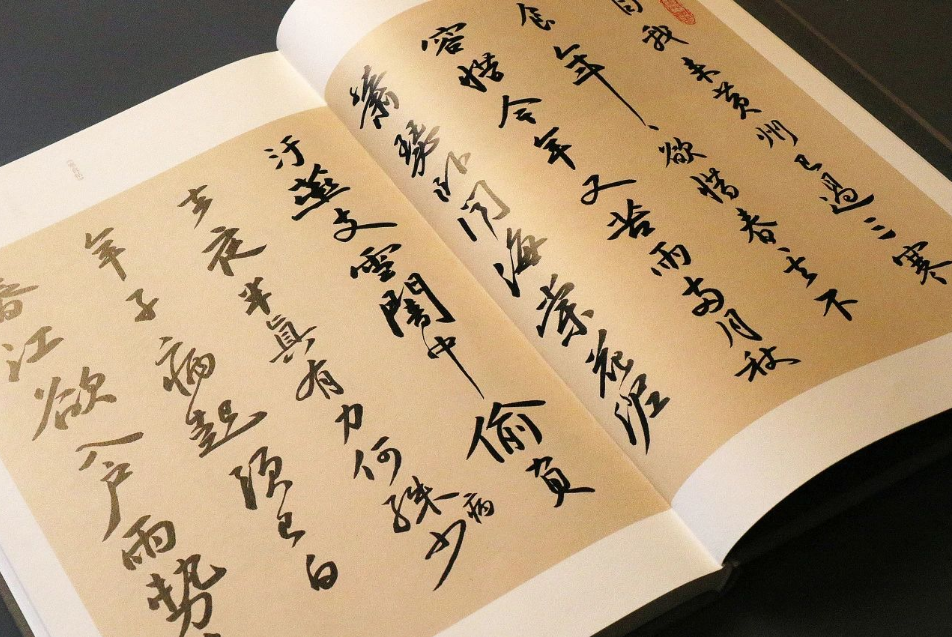 自我来黄州已過三寒
食年〻欲惜春〻去不
容惜今年又苦雨兩月秋
蕭瑟卧聞海棠花泥
汙燕支雪闇中偷負
去夜半真有力何殊病少
年子病起頭已白
春江欲入户雨勢